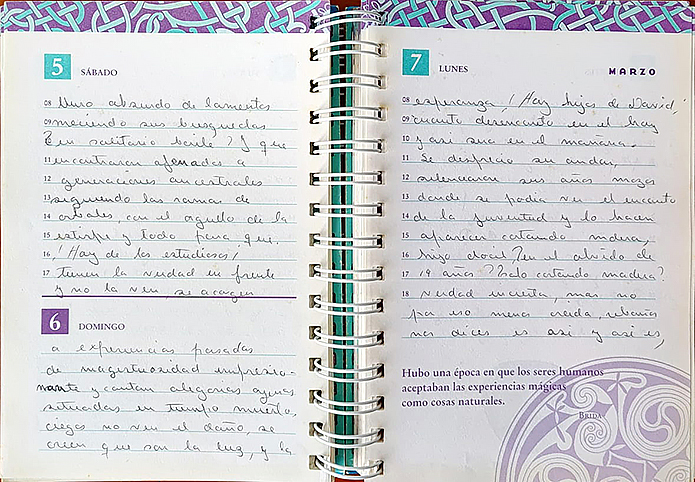 5 SÁBADO
08 Muro absurdo de lamentos
09 meciendo sus busquedas
10 ¿en solitario baile? Y que
11 encontraran afenados a
12 generaciones ancestrales
13 siguiendo las ramas de
14 con el orgullo de la
15 estirpe y todo para que,
16 ¡Hay de los estudiosos!
17 tienen la verdad en frente
y no la ven, se acogen
6 DOMINGO
a experiencias pasadas
de magestuosidad impresio-
nante y cantan alegorias ajenas
situadas en tiempo muerto,
ciegos no ven el daño, se
creen que son la luz, y la
7 LUNES MARZO
08 esperanza ¡Hay hijos de David,
09 cuanto desencanto en el hoy
10 y asi sera en el mañana.
11 Se desprecio su andar,
12 silenciaron sus años mozos
13 donde se podia ver el encanto
14 de la juventud y lo hacen
15 aparecer cortando madera,
16 hijo docil ¿en el olvido de
17 19 años? ¿Solo cortando madera?
18 Verdad incierta, mas no
por eso menos creida, rebaños
nos dices es asi y asi es,
Hubo una época en que los seres humanos
aceptaban las experiencias mágicas
como cosas naturales.
BRIDA